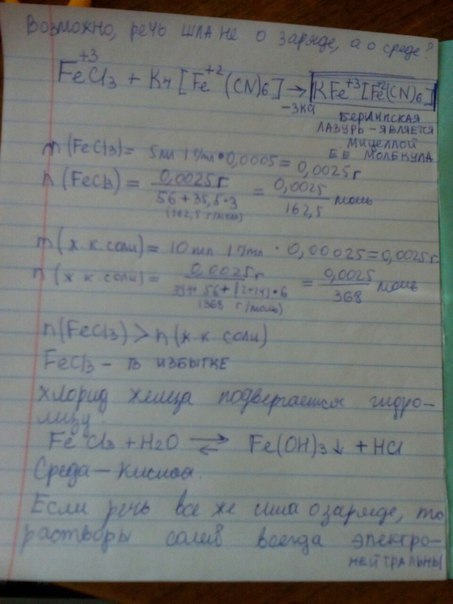 Возможно, речь шла не о заряде, а о среде?
+3
FeCl3 + K4 [Fe+2(CN)6] → KFe+3[Fe+2(CN)6]
-3KCl
БЕРЛИНСКАЯ
ЛАЗУРЬ - ЯВЛЯЕТСЯ
МИЦЕЛЛОЙ
МОЛЕКУЛА
m (FeCl3) = 5мл 1г/мл • 0,0005 = 0,0025г
n (FeCl3) = 0,0025г / 56 + 35,5•3 = 0,0025 / 162,5 моль
(162,5 г/моль)
m (ж.к. соли) = 10мл 1г/мл • 0,00025 = 0,0025г
n (ж.к. соли) = 0,0025г / 39•4 + 56 + (12+14)•6 = 0,0025 / 368 моль
(368 г/моль)
n(FeCl3) > n (ж.к. соли)
FeCl3 - В ИЗБЫТКЕ
Хлорид железа подвергается гидро-
лизу.
FeCl3 + H2O ⇄ Fe(OH)3↓ + HCl
Среда - кислая.
Если речь все же шла о заряде, то
растворы солей всегда электро-
НЕЙТРАЛЬНЫ